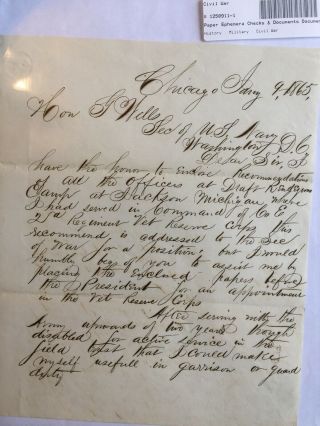 Civil War
# 1250011-1
Paper Ephemera Checks & Documents Docume
History Military Civil War
Chicago Jany 9, 1865,
Hon G Wells
Sec of U.S. Navy
Washington D.C
Dear Sir, I
have the honor to Enclose Recommendations
of all the Officers at Draft Rendezvous
Camp at Jackson Michigan where
I had served in Command of Co E
2d Regiment Vet Reserve Corps this
recommend is addressed to the Sec
of War for a Position but I would
humbly beg of you to assist me by
placing the Enclosed papers before
the President for an appointment
in the Vet Reserve Corps
After serving with the
Army upwards of two years though
disabled for active service in the
field trust that I could make
myself usefull in garrison or guard
duty